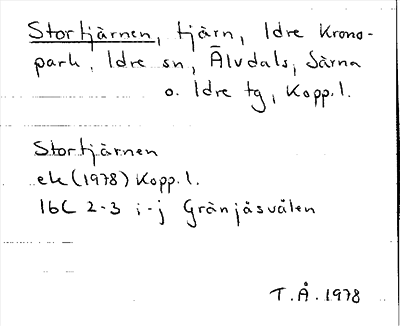 Stortjärnen, tjärn, Idre Krono-
park, Idre sn, Älvdals, Särna
o. Idre tg, Kopp.l.
Stortjärnen
ek (1978) Kopp.l.
16C 2-3 i-j Gränjåsvålen
T.Å. 1978